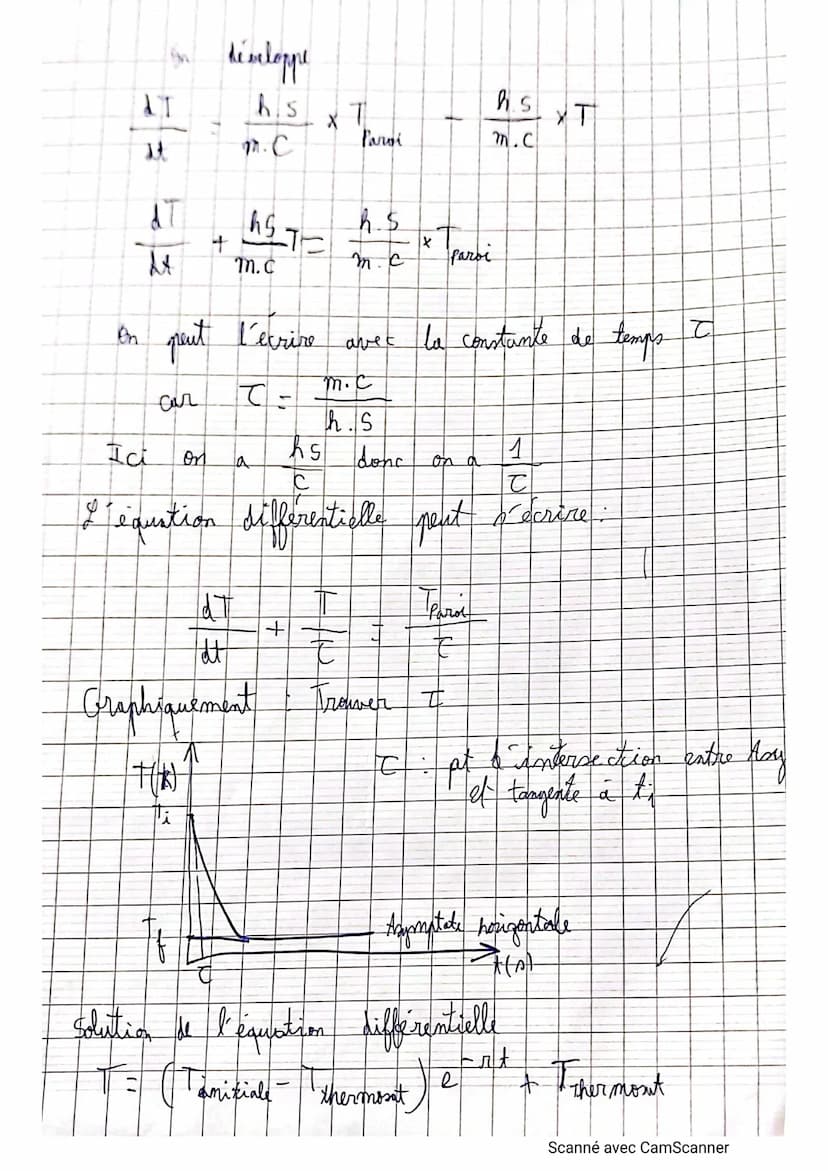 On développe
dT/dt = h.S/m.C x T Paroi - h.S/m.C x T
dT/dt + hS/m.C T = h.S/m.C x T paroi
On peut l'écrire avec la constante de temps τ
car τ = m.C/h.S
Ici on a hS/C donc on a 1/τ
L'équation différentielle peut s'écrire :
dT/dt + T/τ = T Paroi/τ
Graphiquement : Trouver τ
T(k)
τ : pt d'intersection entre Asy
et tangente à ti
Ti
Tf
Asymptote horizontale
t(s)
τ
Solution de l'équation différentielle
T = (T initiale - T thermosat) e^-rt + T Thermosat
Scanné avec CamScanner